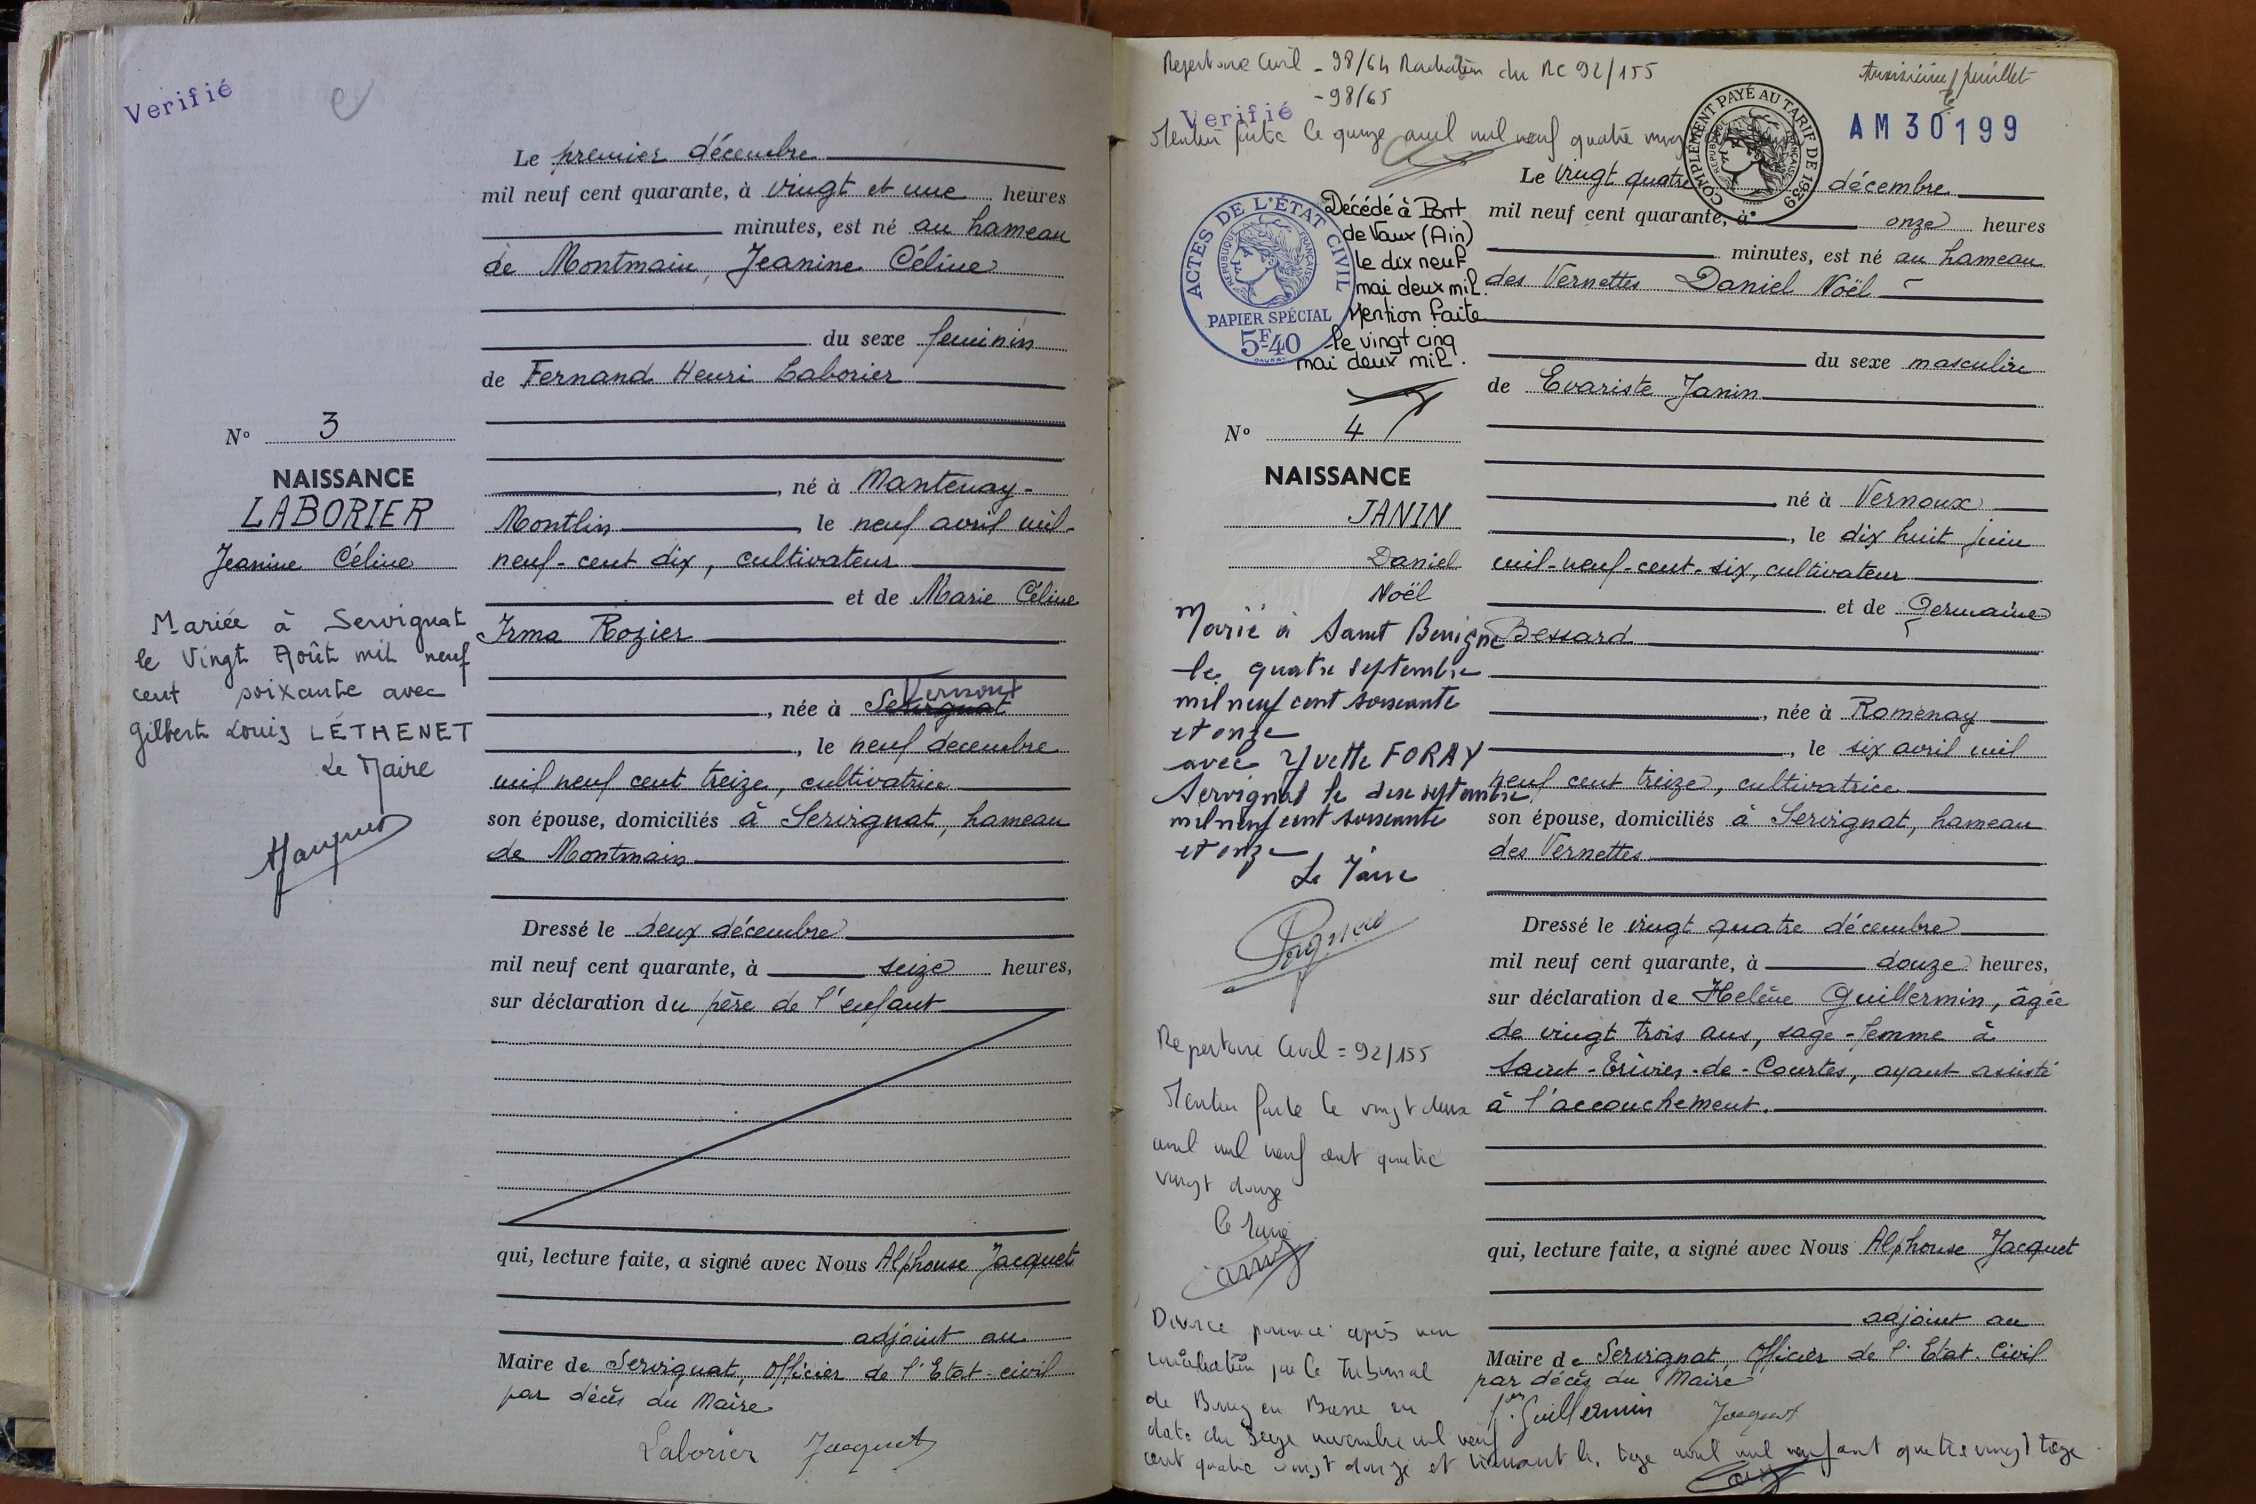 Verifié
Le premier décembre
mil neuf cent quarante, à vingt et une heures
minutes, est né au hameau
de Montmain, Jeanine Céline
du sexe feminin
de Fernand Henri Laborier
, né à Mantenay-
Montlin, le neuf avril mil-
neuf-cent dix, cultivateur
et de Marie Céline
Irma Rozier
Vernoux
, née à Servignat
, le neuf decembre
mil neuf cent treize, cultivatrice
son épouse, domiciliés à Servignat, hameau
de Montmain
Dressé le deux décembre
mil neuf cent quarante, à seize heures,
sur déclaration du père de l'enfant
qui, lecture faite, a signé avec Nous Alphonse Jacquet
adjoint au
Maire de Servignat, Officier de l'Etat-civil
par décès du Maire
Laborier Jacquet
N° 3
NAISSANCE
LABORIER
Jeanine Céline
Mariée à Servignat
le Vingt Août mil neuf
cent soixante avec
Gilbert Louis LÉTHENET
Le Maire
Repertoire Civil - 98/64 Radiation du RC 92/155
- 98/65
Verifié
Mention faite le quinze avril mil neuf quatre
troisième feuillet
AM30199
COMPLÉMENT PAYÉ AU TARIF DE 1939
RÉPUBLIQUE FRANÇAISE
ACTES DE L'ÉTAT CIVIL
RÉPUBLIQUE FRANÇAISE
PAPIER SPÉCIAL
5F40
Décédé à Pont
de Vaux (Ain)
le dix neuf
mai deux mil.
Mention faite
le vingt cinq
mai deux mil.
N° 4
NAISSANCE
JANIN
Daniel
Noël
Marié à Saint Benigne
le quatre septembre
mil neuf cent soixante
et onze
avec Yvette FORAY
Servignat le dix septembre
mil neuf cent soixante
et onze
Le Maire
Repertoire Civil = 92/155
Mention faite le vingt deux
avril mil neuf cent quatre
vingt douze
Le Maire
Divorce prononcé après non
conciliation par le Tribunal
de Bourg en Bresse en
date du seize novembre mil neuf
cent quatre vingt douze et le treize avril mil neuf cent quatre vingt treize
Le vingt quatre décembre
mil neuf cent quarante, à onze heures
minutes, est né au hameau
des Vernettes Daniel Noël
du sexe masculin
de Evariste Janin
né à Vernoux
, le dix huit juin
mil-neuf-cent-six, cultivateur
et de Germaine
Bessard
, née à Romenay
, le six avril mil
neuf cent treize, cultivatrice
son épouse, domiciliés à Servignat, hameau
des Vernettes
Dressé le vingt quatre décembre
mil neuf cent quarante, à douze heures,
sur déclaration de Helène Guillermin, âgée
de vingt trois ans, sage-femme à
Saint-Trivier-de-Courtes, ayant assisté
à l'accouchement.
qui, lecture faite, a signé avec Nous Alphonse Jacquet
adjoint au
Maire de Servignat, Officier de l'Etat-Civil
par décès du Maire
Guillermin Jacquet